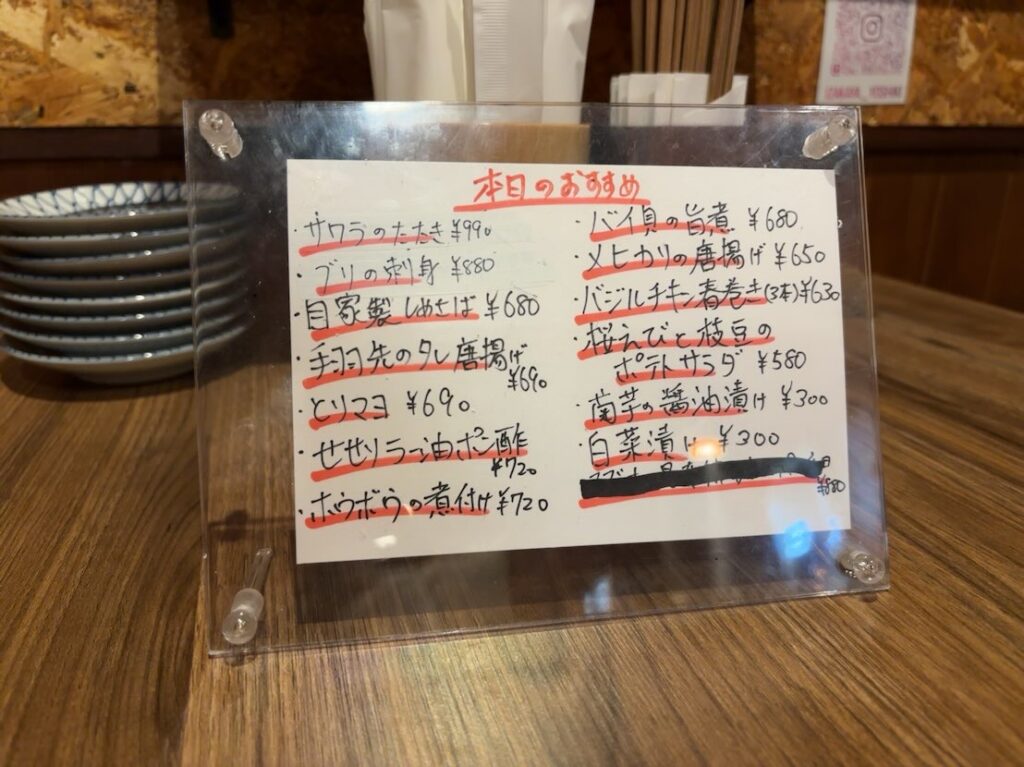 本日のおすすめ
・サワラのたたき ¥990
・ブリの刺身 ¥880
・自家製しめさば ¥680
・手羽先のタレ唐揚げ
¥690
・とりマヨ ¥690
・せせりラー油ポン酢
¥720
・ホウボウの煮付け ¥720
・バイ貝の旨煮 ¥680
・メヒカリの唐揚げ ¥650
・バジルチキン春巻き(3本)¥630
・桜えびと枝豆の
ポテトサラダ ¥580
・菊芋の醤油漬け ¥300
・白菜漬け ¥300
¥880